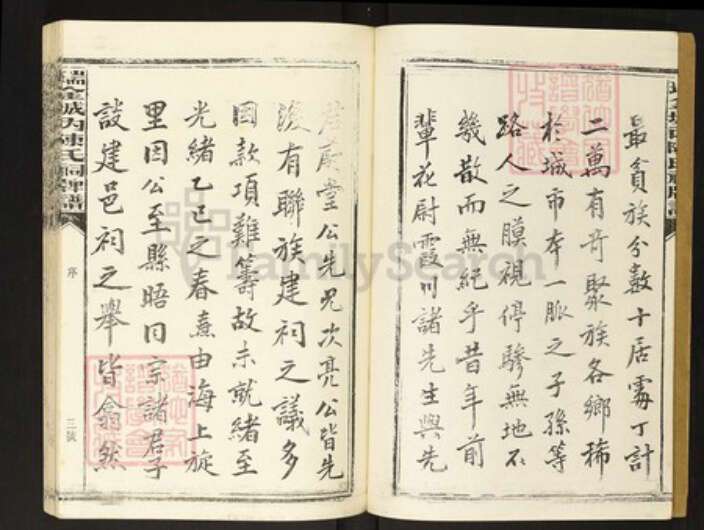 最貧族分數十居零丁計
二萬有奇聚族各鄉稀
於城市本一脈之子孫等
路人之膜視停驂無地不
幾散而無紀乎昔年前
輩花尉霞川諸先生與先
堂公先兄次亮公皆先
後有聯族建祠之議多
因款項難籌故未就緒至
光緒乙巳之春熹由海上旋
里因公至縣晤同宗諸君子
談建邑祠之舉皆翕然
瑞金城內陳氏祠牌譜
序
三號
FamilySearch